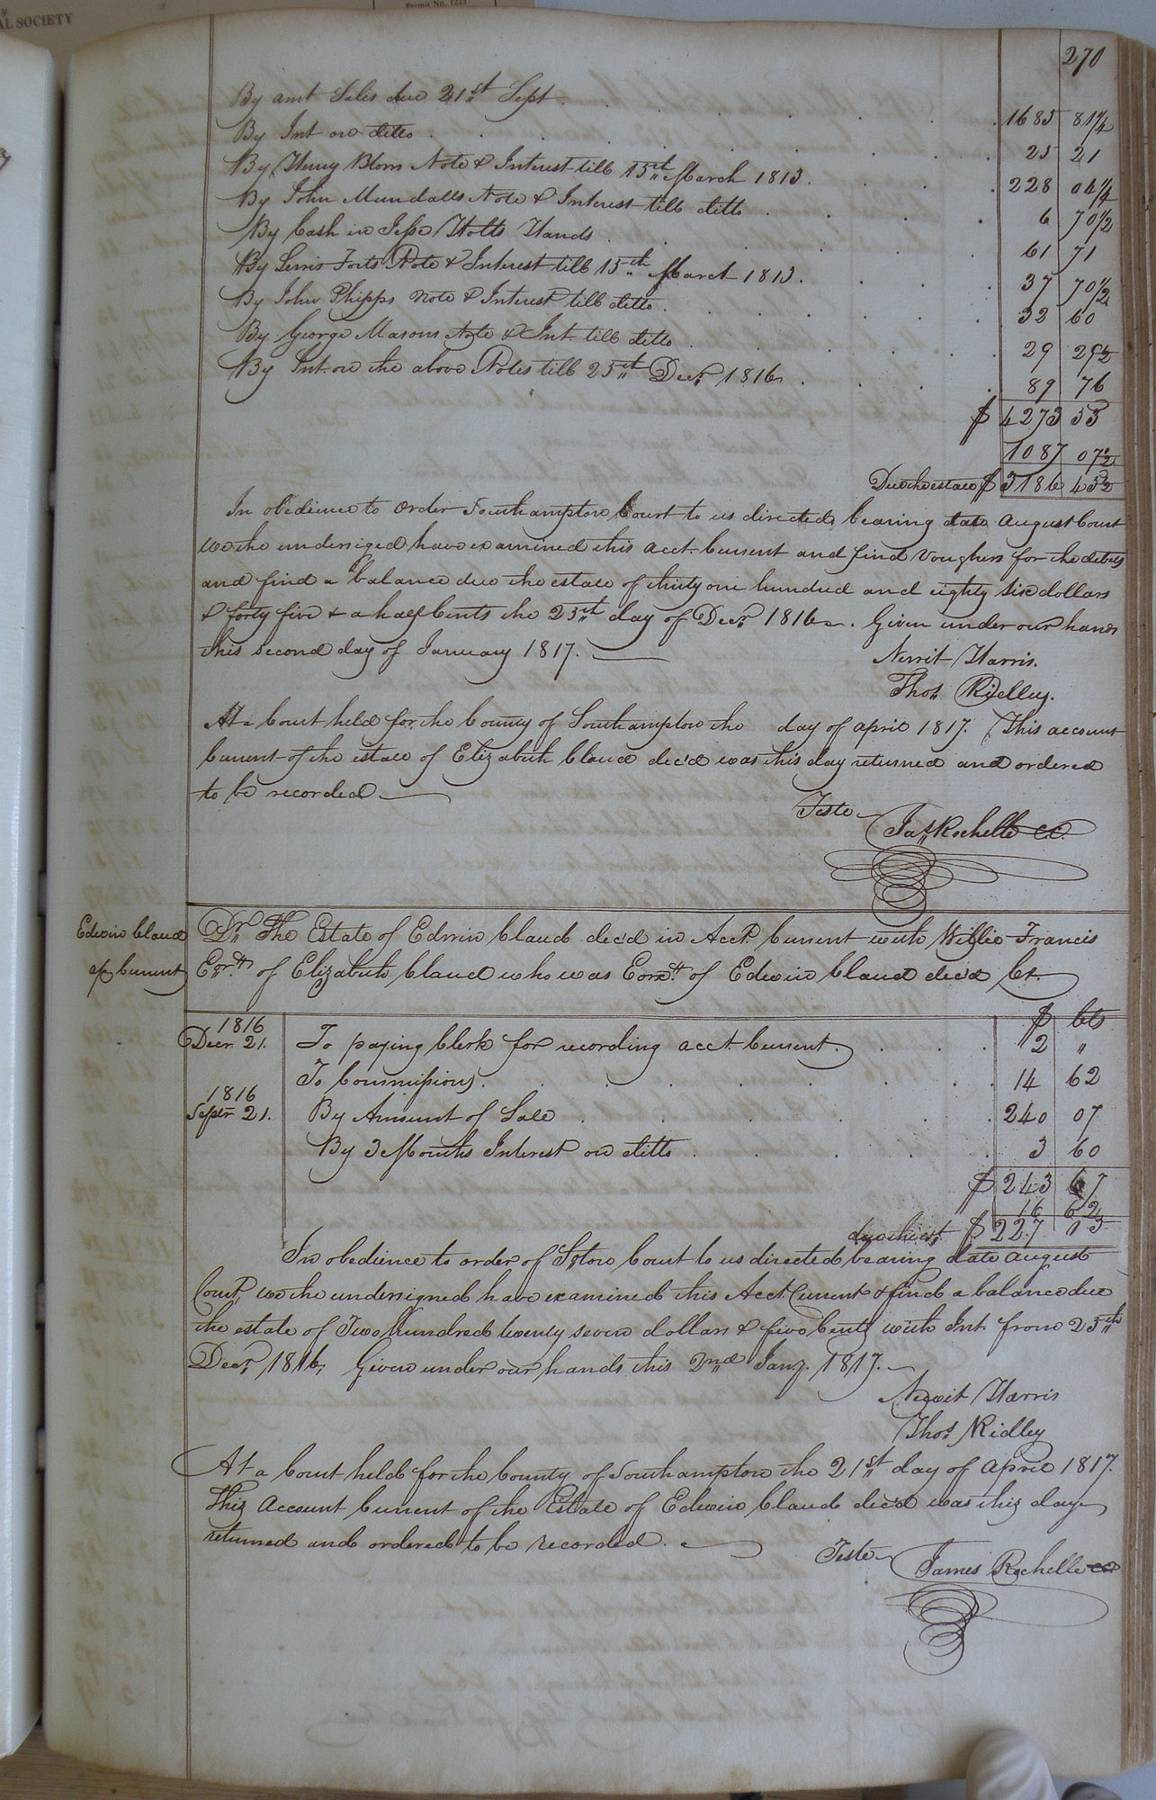 AL SOCIETY
Permit No. 1225
270
By amt Sales due 21st Sept 1683 81¼
By Int on ditto 25 21
By Henry Blows Note & Interest till 15th March 1813 228 04¼
By John Mundalls Note & Interest till ditto 6 70½
By Cash in Jesse Holts Hands 61 71
By Lewis Forts Note & Interest till 15th March 1813 37 70½
By John Phipps note & Interest till ditto 32 60
By George Masons Note & Int till ditto 29 29½
By Int on the above Notes till 25th Decr 1816 89 76
$ 4273 53
1087 07½
Due the estate $ 3186 45½
In obedience to order Southampton Court to us directed bearing date August Court
we the undersiged have examined this acct. Current and find Voughers for the debits
and find a balance due the estate of thirty one hundred and eighty six dollars
& forty five & a half Cents the 25th day of Decr 1816. Given under our hands
this second day of January 1817.
Newit Harris.
Thos. Ridley.
At a Court held for the County of Southampton the day of april 1817. This account
Current of the estate of Elizabeth Claud dec'd was this day returned and ordered
to be recorded
Teste
Jas Rochelle C.C.
Edwin Claud
a/c Current
Dr. The Estate of Edwin Claud dec'd in Acct Current with Willie Francis
Exr. of Elizabeth Claud who was Exrx. of Edwin Claud dec'd Cr.
$ Cts
1816
Decr. 21. To paying Clerk for recording acct. Current 2 "
To Commissions 14 62
1816
Septr 21. By Amount of Sale 240 07
By 3 Months Interest on ditto 3 60
$ 243 67
16 62
due the est. $ 227 05
In obedience to order of S,ton Court to us directed bearing date august
Court, we the undersigned have examined this Acct Current & find a balance due
the estate of Two hundred twenty seven dollars & five Cents with Int from 25th
Decr 1816, Given under our hands this 2nd Jany. 1817.
Newit Harris
Thos. Ridley
At a Court held for the County of Southampton the 21st day of april 1817.
This Account Current of the Estate of Edwin Claud dec'd was this day
returned and ordered to be recorded.
Teste
James Rochelle CC